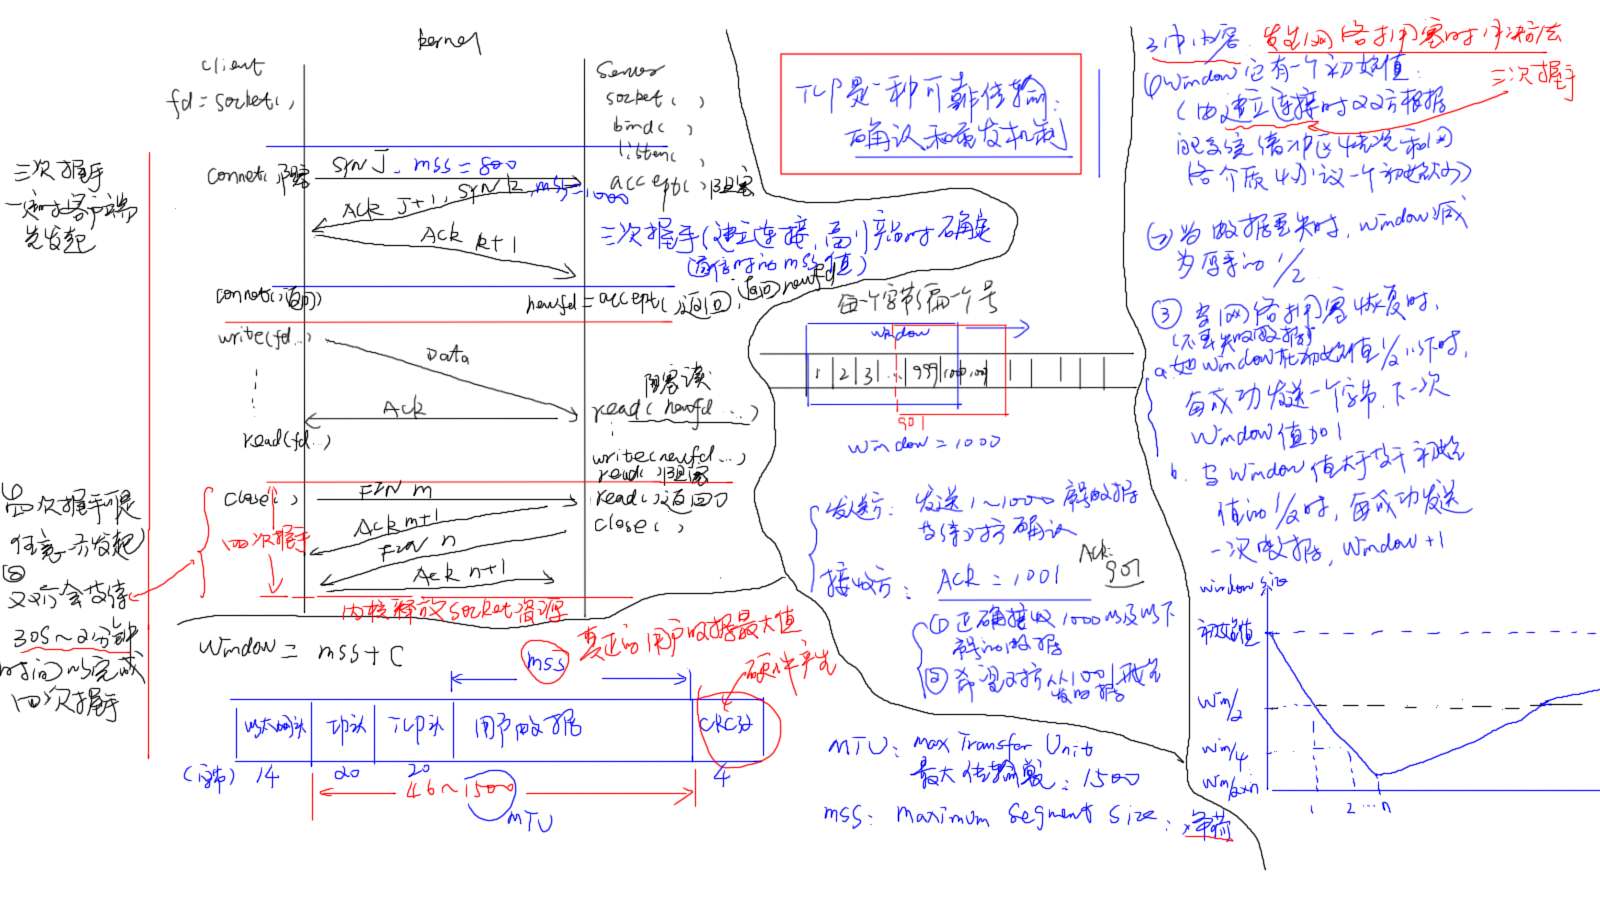 kernel
client
fd = socket( ,
server
socket( )
bind( )
listen( )
accept( )阻塞
connet( , 阻塞
SYN J, mss = 800
SYN k, mss = 1000
ACK J+1,
ACK k+1
三次握手
一定时客户端
先发起
三次握手(建立连接,
时确定
通信时的mss值)
connet( , 返回)
newfd = accept( ,返回, 返回newfd
write(fd...
Data
阻塞读
ACK
read( newfd ...)
read(fd...)
write(newfd...,
read( ,阻塞
close( ,
FIN m
read( ,返回0
ACK m+1
close( ,
FIN n
ACK n+1
四次握手
内核释放socket资源
①
四次握手可是
任意一方发起
②
双方会等待
30s~2分钟
时间以完成
四次握手
window = mss + C
mss
真正的用户数据最大值
硬件产生
以太网头
IP头
TCP头
用户数据
CRC
(字节) 14
20
20
4
46~1500
MTU
TCP是一种可靠传输:
确认和重发机制
每一个字节编一个号
window
1 2 3 ... 999 1000 1001
901
window = 1000
发送方: 发送1~1000 号的数据
等待对方确认
接收方: ACK = 1001
ACK:
901
① 正确接收1000以及以下
号的数据
② 希望对方从1001开始
发数据
MTU: max Transfor Unit
最大传输: 1500
mss: maximum segment size:
净荷
3中内容: 发生网络拥塞时
三次握手
① window 它有一个初始值:
(由建立连接时双方根据
系统缓冲区情况和网
络介质协议一个初始的)
② 当数据丢失时, window减
为原来的 1/2
③ 当网络拥塞恢复时,
(不再失败数据)
a. window在初始值1/2以下时,
每成功发送一个字节, 下一次
window值加1
b. 当window值大于等于初始
值的1/2时, 每成功发送
一次数据, window+1
window size
初始值
win/2
win/4
win/2×n
1
2 ... n